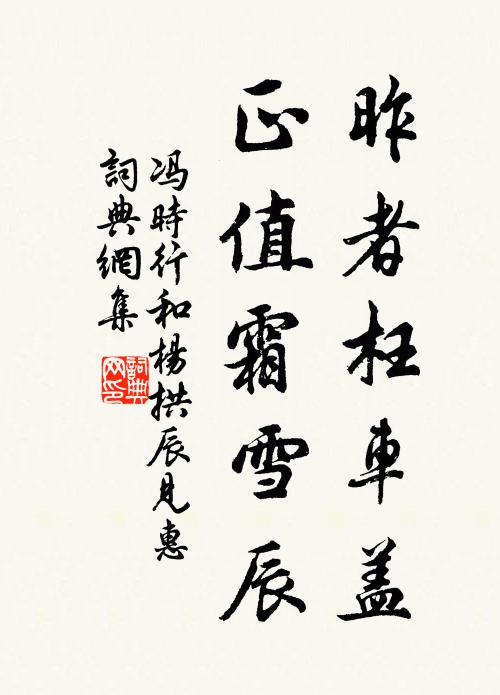 昨者枉車盖
正值霜雪辰
冯時行和楊拱辰見惠
詞典網集
詞典网印